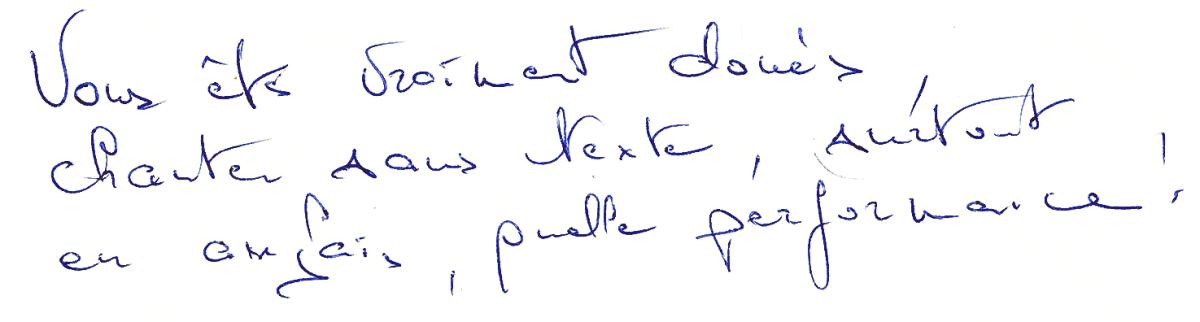 Vous êtes vraiment doués,
chanter sans texte, surtout
en anglais, quelle performance !